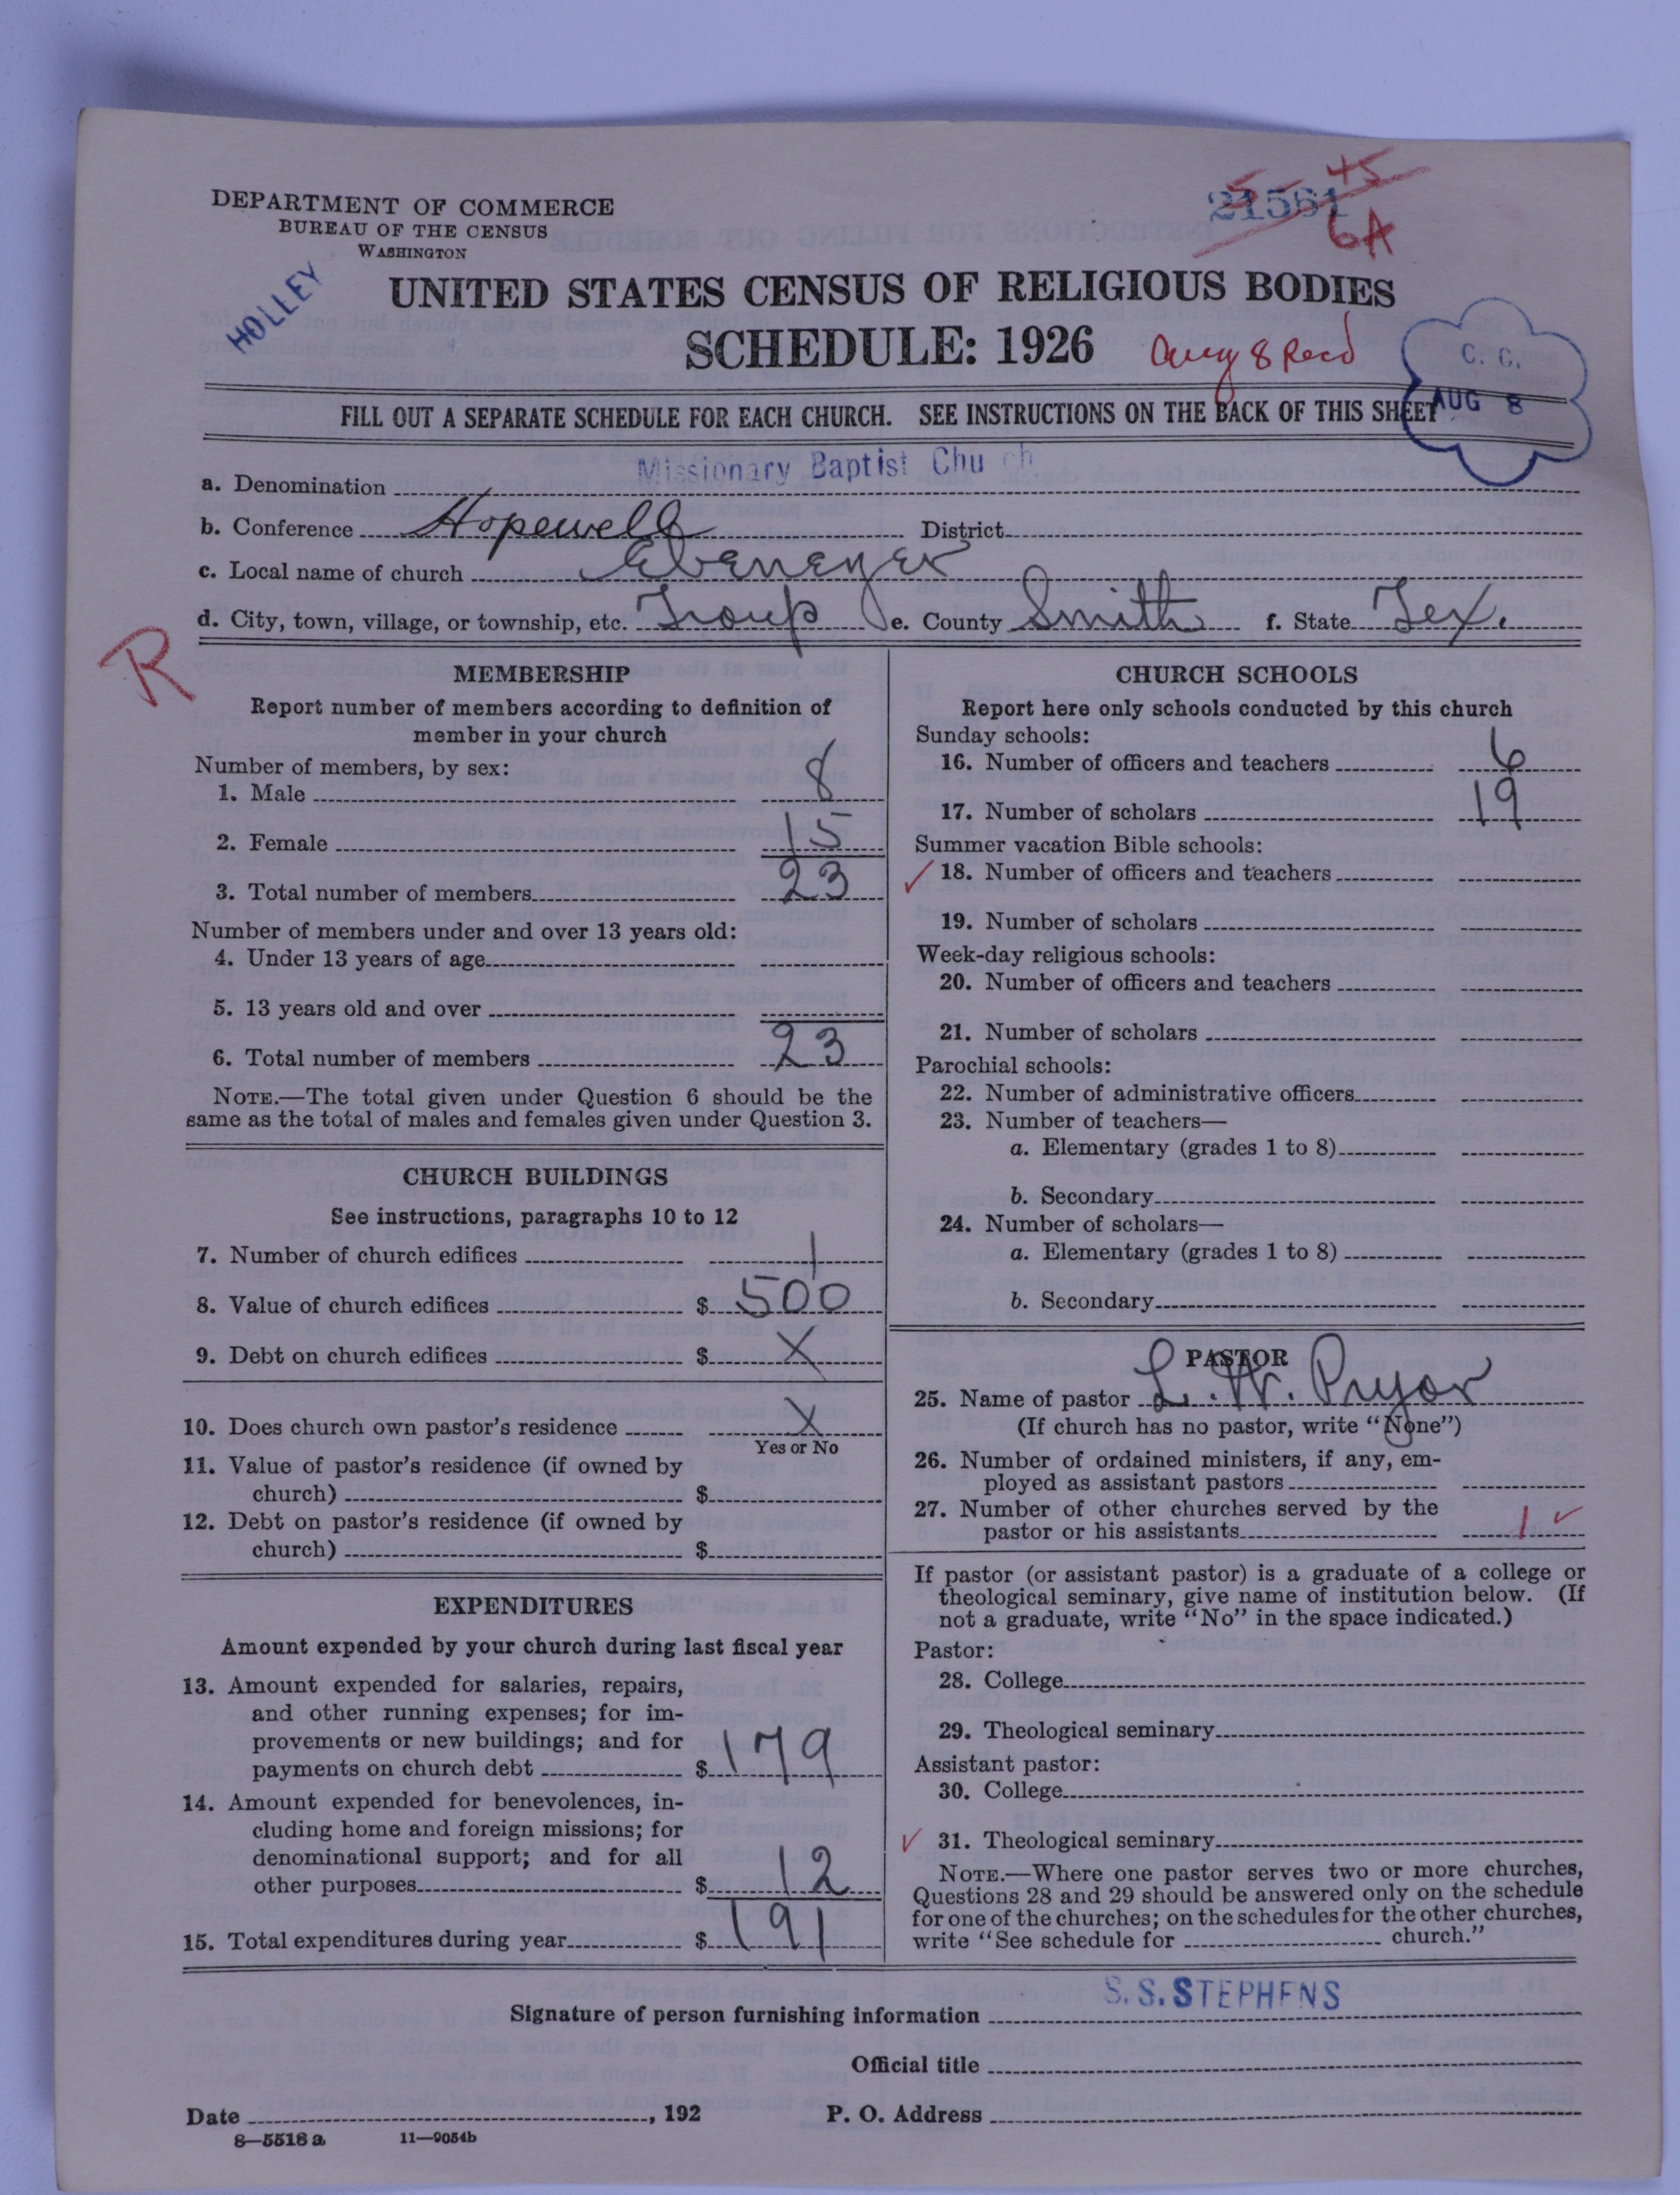 DEPARTMENT OF COMMERCE
BUREAU OF THE CENSUS
WASHINGTON
HOLLEY
21561
45
6A
UNITED STATES CENSUS OF RELIGIOUS BODIES
SCHEDULE: 1926
Aug 8 Recd
C. C.
AUG 8
FILL OUT A SEPARATE SCHEDULE FOR EACH CHURCH. SEE INSTRUCTIONS ON THE BACK OF THIS SHEET
a. Denomination Missionary Baptist Chu ch
b. Conference Hopewell District
c. Local name of church Ebenezer
d. City, town, village, or township, etc. Troup e. County Smith f. State Tex.
R
MEMBERSHIP
Report number of members according to definition of
member in your church
Number of members, by sex:
1. Male 8
2. Female 15
3. Total number of members 23
Number of members under and over 13 years old:
4. Under 13 years of age
5. 13 years old and over
6. Total number of members 23
NOTE.—The total given under Question 6 should be the
same as the total of males and females given under Question 3.
CHURCH BUILDINGS
See instructions, paragraphs 10 to 12
7. Number of church edifices 1
8. Value of church edifices $ 500
9. Debt on church edifices $ X
10. Does church own pastor's residence X
Yes or No
11. Value of pastor's residence (if owned by
church) $
12. Debt on pastor's residence (if owned by
church) $
EXPENDITURES
Amount expended by your church during last fiscal year
13. Amount expended for salaries, repairs,
and other running expenses; for im-
provements or new buildings; and for
payments on church debt $ 179
14. Amount expended for benevolences, in-
cluding home and foreign missions; for
denominational support; and for all
other purposes $ 12
15. Total expenditures during year $ 191
CHURCH SCHOOLS
Report here only schools conducted by this church
Sunday schools:
16. Number of officers and teachers 6
17. Number of scholars 19
Summer vacation Bible schools:
✓ 18. Number of officers and teachers
19. Number of scholars
Week-day religious schools:
20. Number of officers and teachers
21. Number of scholars
Parochial schools:
22. Number of administrative officers
23. Number of teachers—
a. Elementary (grades 1 to 8)
b. Secondary
24. Number of scholars—
a. Elementary (grades 1 to 8)
b. Secondary
PASTOR
25. Name of pastor L. W. Pryor
(If church has no pastor, write "None")
26. Number of ordained ministers, if any, em-
ployed as assistant pastors
27. Number of other churches served by the
pastor or his assistants 1 ✓
If pastor (or assistant pastor) is a graduate of a college or
theological seminary, give name of institution below. (If
not a graduate, write "No" in the space indicated.)
Pastor:
28. College
29. Theological seminary
Assistant pastor:
30. College
✓ 31. Theological seminary
NOTE.—Where one pastor serves two or more churches,
Questions 28 and 29 should be answered only on the schedule
for one of the churches; on the schedules for the other churches,
write "See schedule for church."
Signature of person furnishing information S. S. STEPHENS
Official title
Date , 192 P. O. Address
8—5518 a 11—9054b